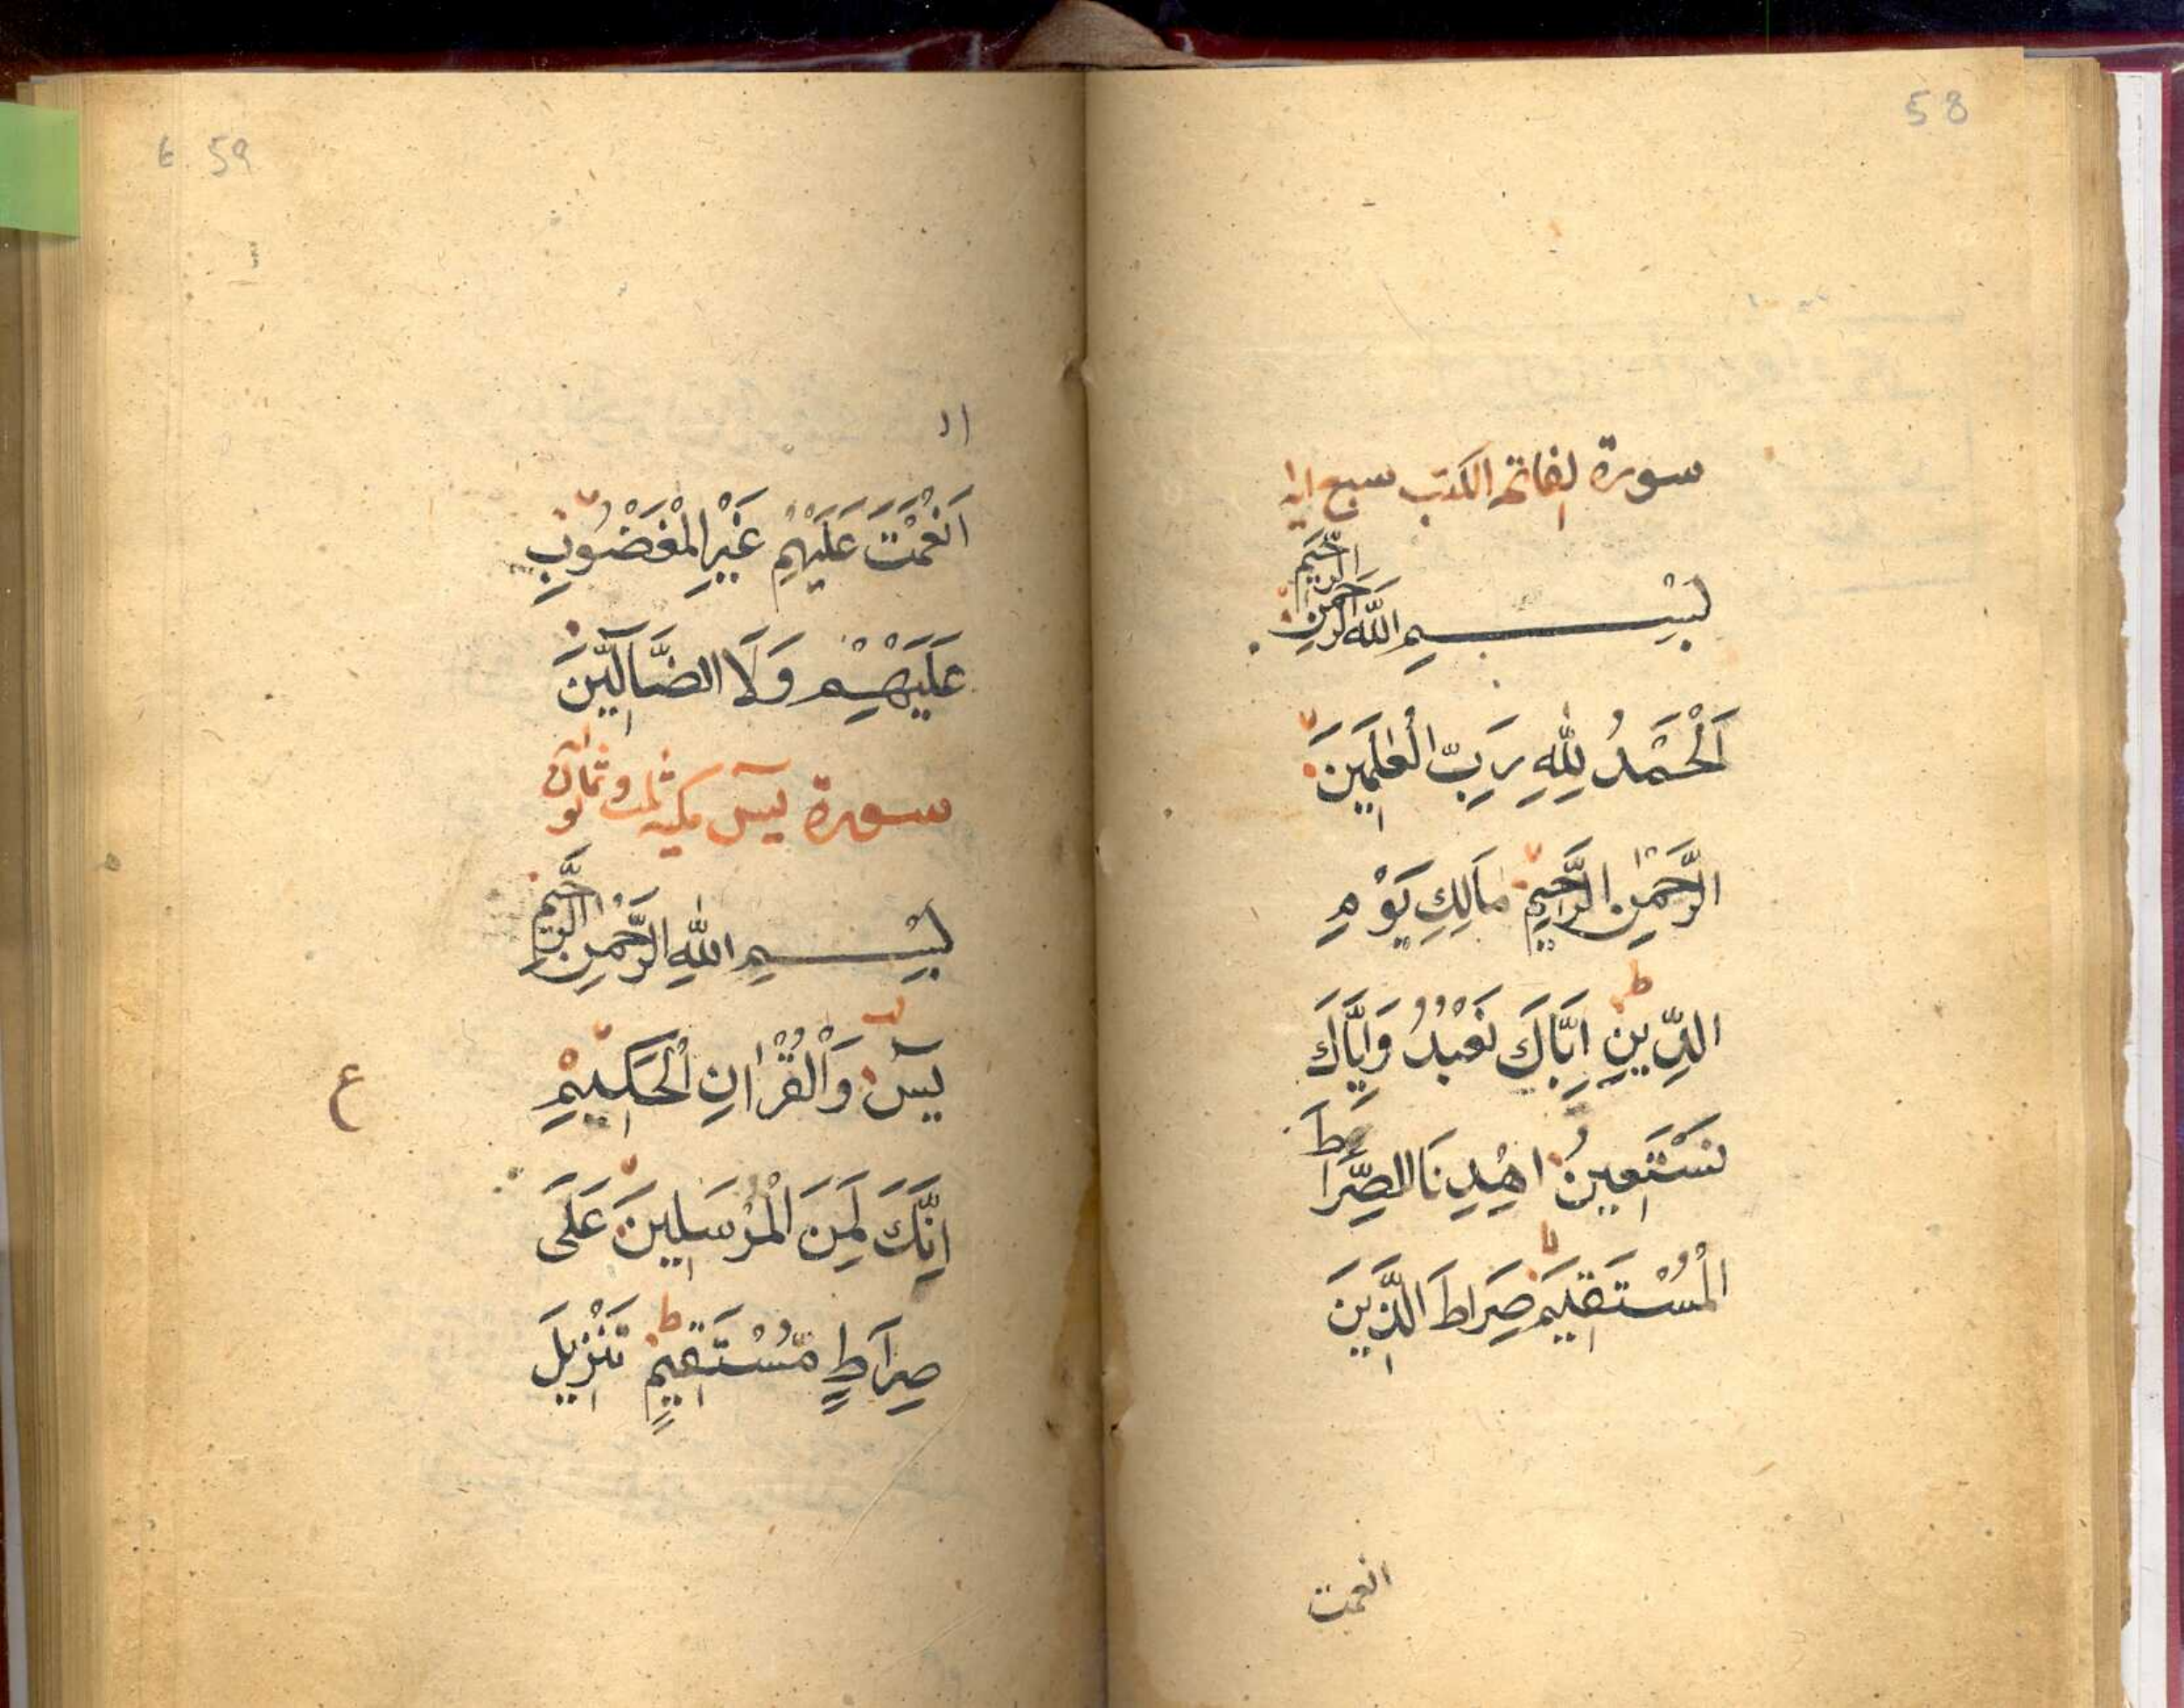 58
سورة الفاتحة الكتب سبع اية
بِسْمِ اللّٰهِ الرَّحْمٰنِ الرَّحِيْمِ
اَلْحَمْدُ لِلّٰهِ رَبِّ الْعٰلَمِيْنَ
الرَّحْمٰنِ الرَّحِيْمِ مَالِكِ يَوْمِ
الدِّيْنِ ط اِيَّاكَ نَعْبُدُ وَاِيَّاكَ
نَسْتَعِيْنُ اهْدِنَا الصِّرَاطَ
الْمُسْتَقِيْمَ صِرَاطَ الَّذِيْنَ
انعمت
59
اَنْعَمْتَ عَلَيْهِمْ غَيْرِ الْمَغْضُوْبِ
عَلَيْهِمْ وَلَا الضَّآلِّيْنَ
سورة يٓس مكية ثلث وثمانون
بِسْمِ اللّٰهِ الرَّحْمٰنِ الرَّحِيْمِ
يٰسٓ وَالْقُرْاٰنِ الْحَكِيْمِ
ع
اِنَّكَ لَمِنَ الْمُرْسَلِيْنَ عَلٰى
صِرَاطٍ مُّسْتَقِيْمٍ ط تَنْزِيْلَ